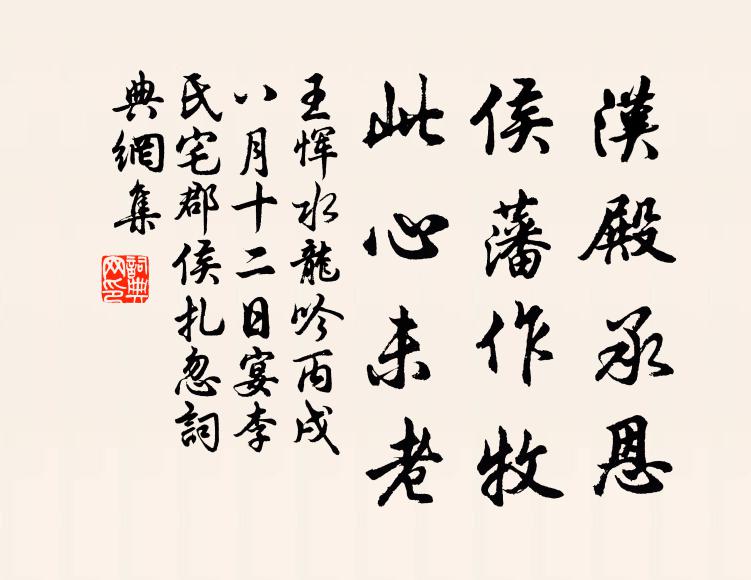 漢殿承恩
侯藩作牧
此心未老
王惲水龍吟丙戌
八月十二日宴李
氏宅郡侯扎忽詞
典網集
詞典
网印